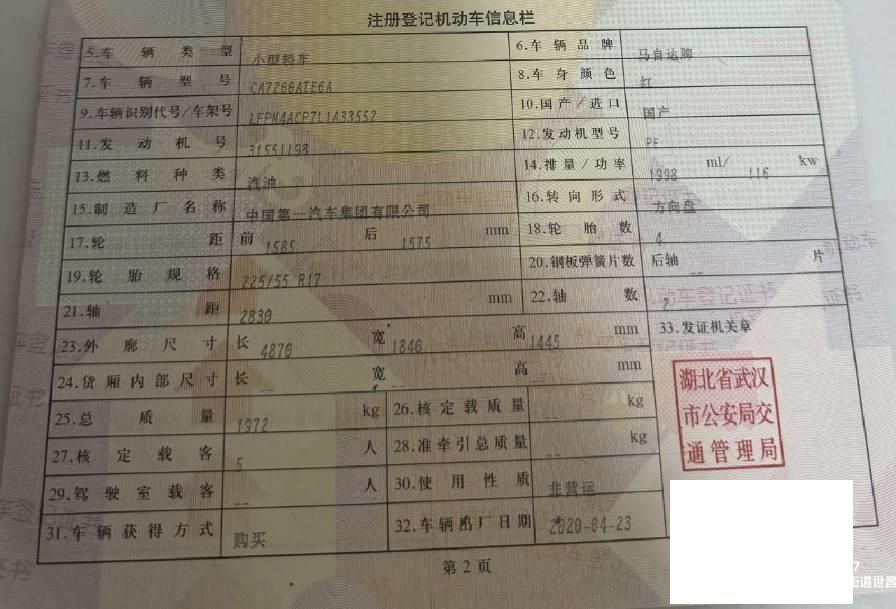 注册登记机动车信息栏
5.车辆类型 小型轿车 6.车辆品牌 马自达牌
7.车辆型号 CA7200ATE6A 8.车身颜色 红
9.车辆识别代号/车架号 LFPM4ACP7L1A33552 10.国产/进口 国产
11.发动机号 31551198 12.发动机型号 PE
13.燃料种类 汽油 14.排量/功率 1998 ml/ 116 kw
15.制造厂名称 中国第一汽车集团有限公司 16.转向形式 方向盘
17.轮距 前 1585 后 1575 mm 18.轮胎数 4
19.轮胎规格 225/55 R17 20.钢板弹簧片数 后轴 -- 片
21.轴距 2830 mm 22.轴数 2
23.外廓尺寸 长 4870 宽 1840 高 1445 mm 33.发证机关章
24.货厢内部尺寸 长 -- 宽 -- 高 -- mm
25.总质量 1972 kg 26.核定载质量 -- kg
27.核定载客 5 人 28.准牵引总质量 -- kg
29.驾驶室载客 -- 人 30.使用性质 非营运
31.车辆获得方式 购买 32.车辆出厂日期 2020-04-23
湖北省武汉
市公安局交
通管理局
第2页
7
街道世昌